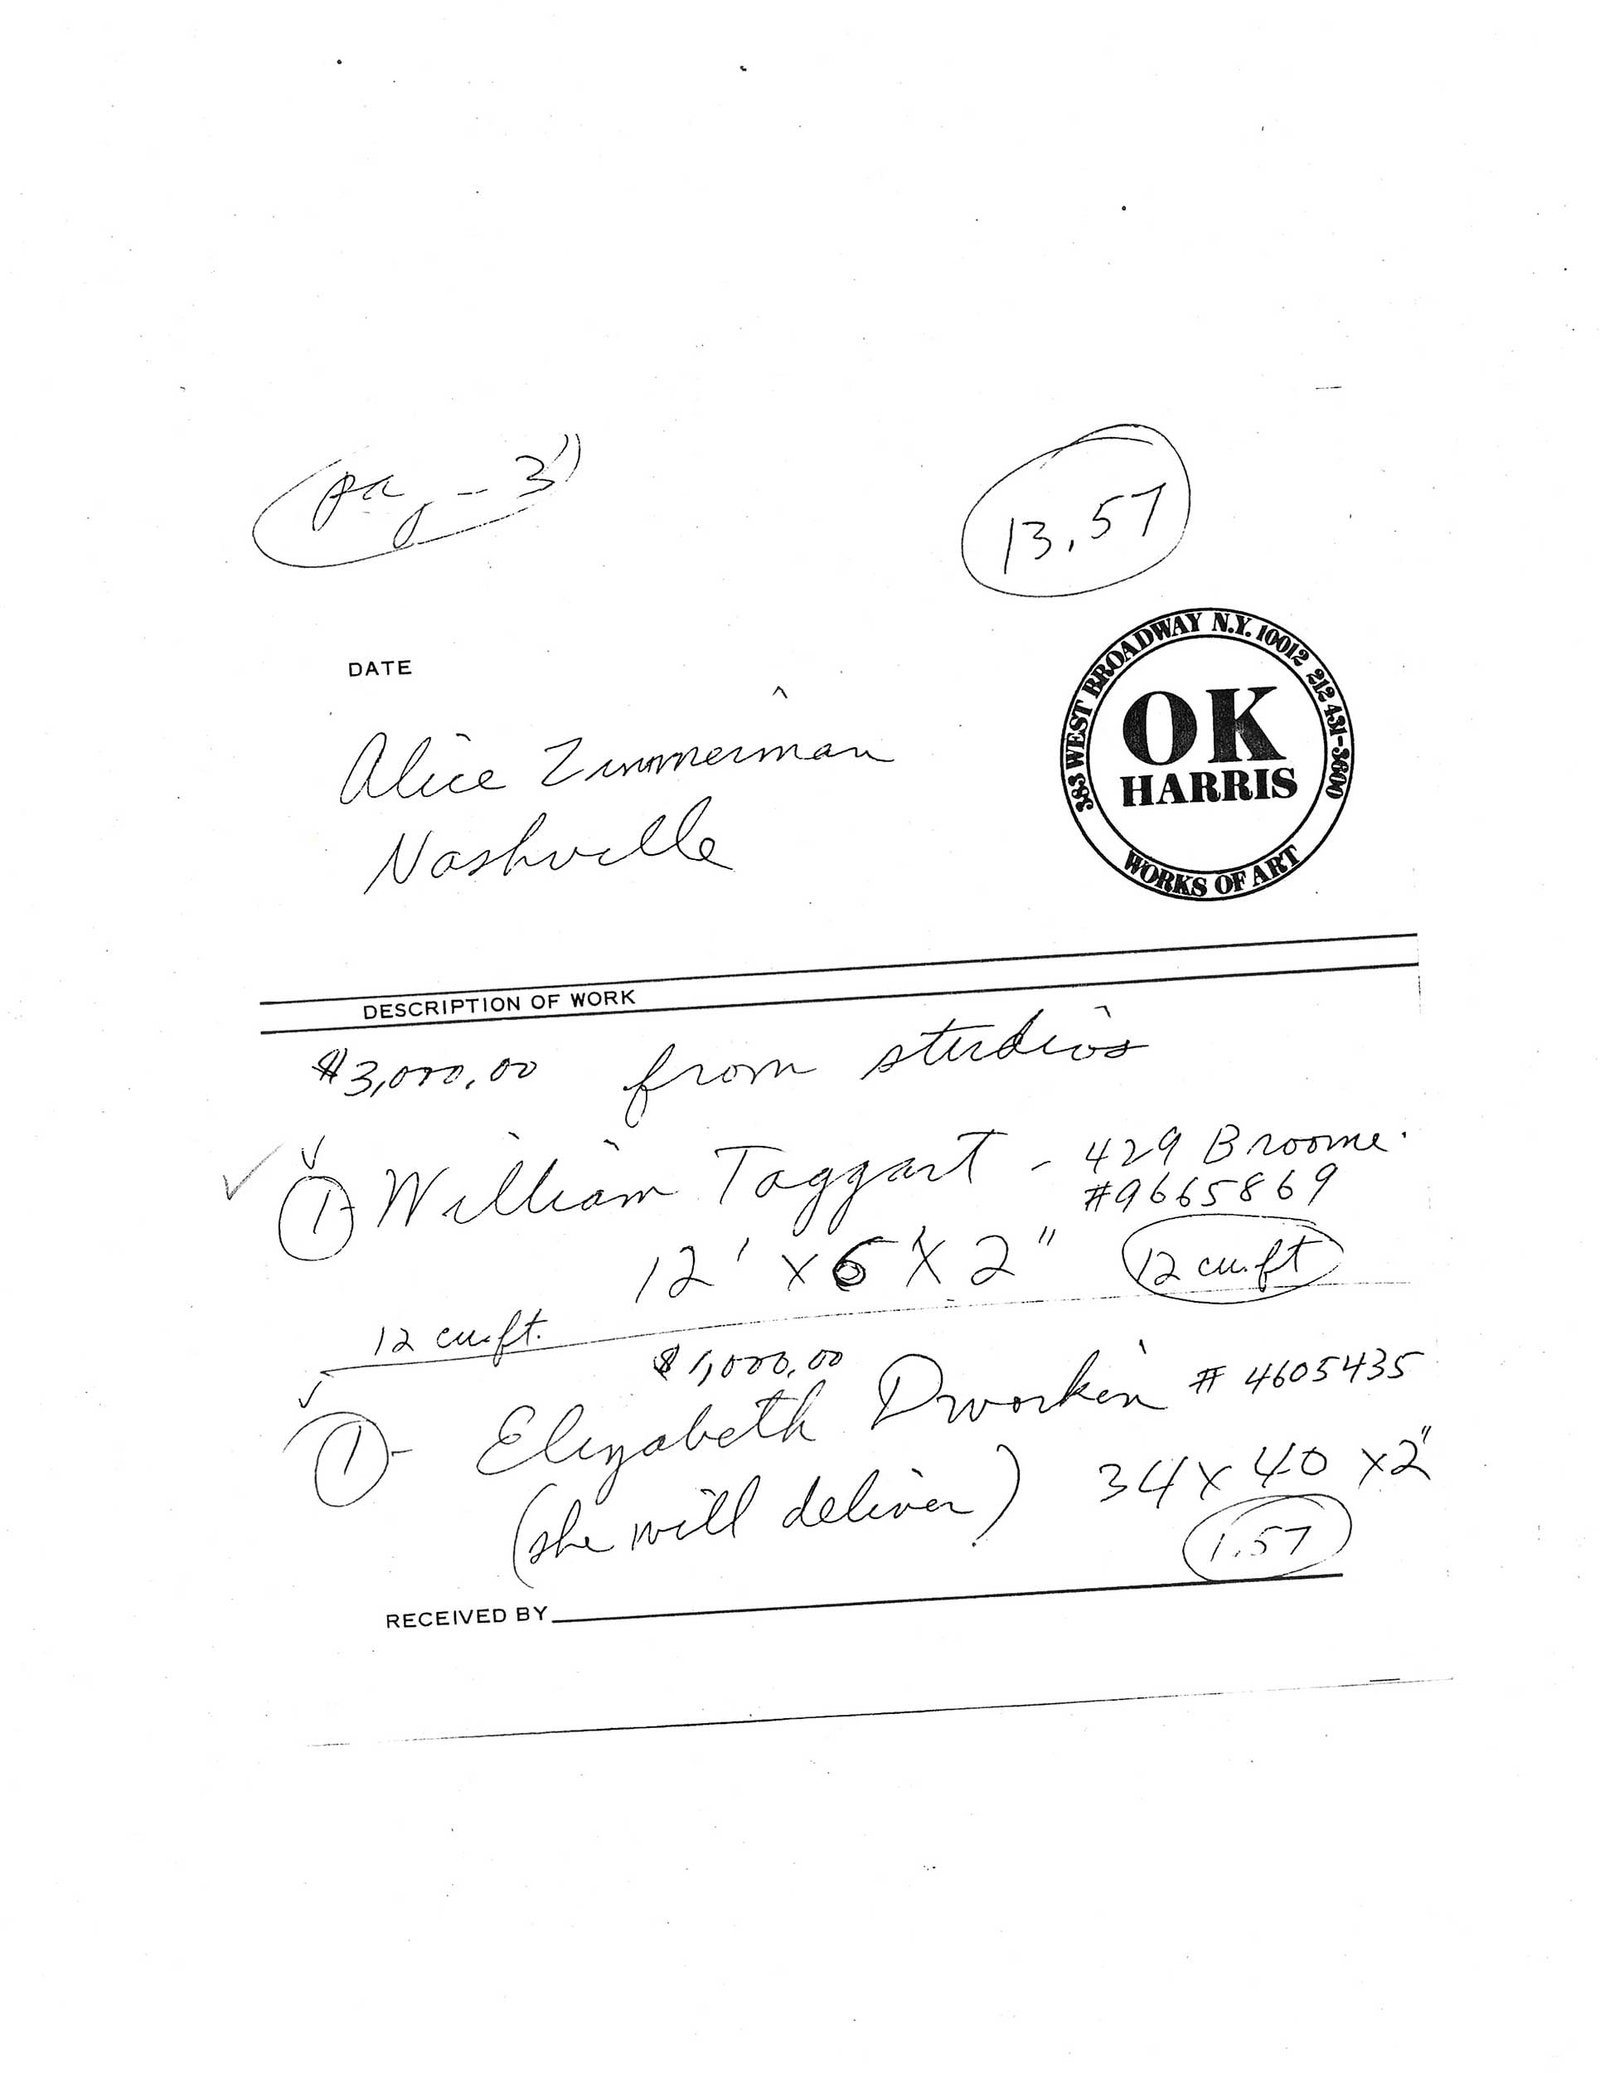 (pg - 3)
13.57
DATE
383 WEST BROADWAY N.Y. 10012 212 431-3600
OK
HARRIS
WORKS OF ART
Alice Zimmerman
Nashville
DESCRIPTION OF WORK
$3,000.00 from studios
1- William Taggart - 429 Broome.
#9665869
12' x 6' x 2" 12 cu.ft
12 cu.ft.
$1,000.00
1- Elizabeth Dworkin # 4605435
(she will deliver) 34 x 40 x 2"
1.57
RECEIVED BY